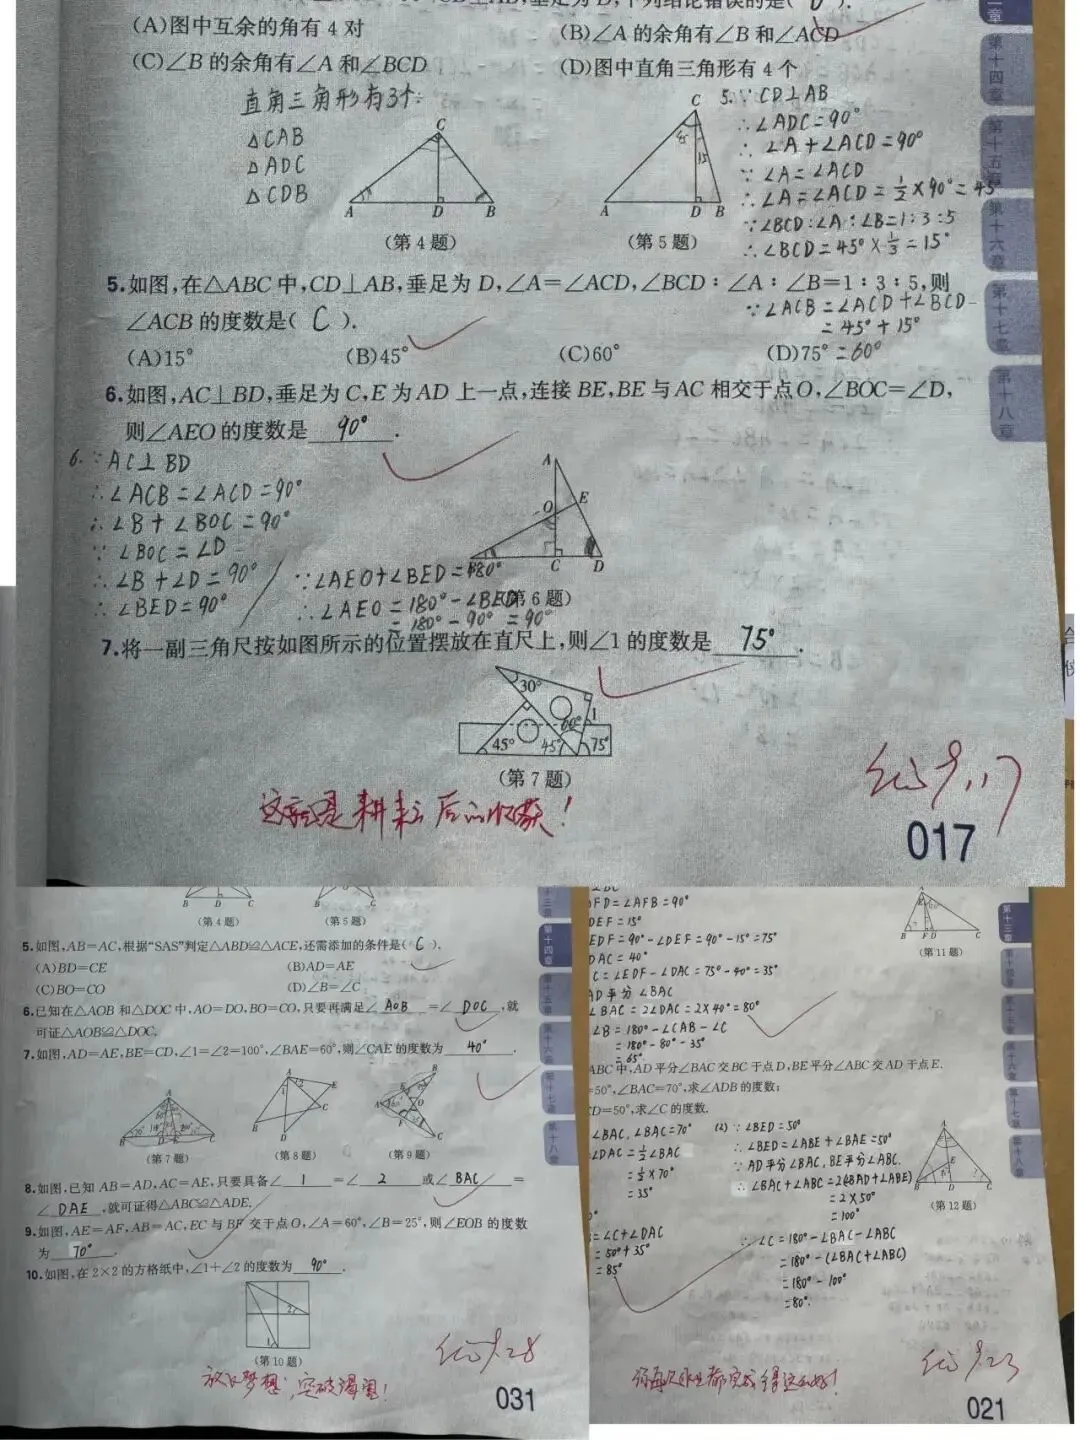 (A)图中互余的角有4对
(B)∠A的余角有∠B和∠ACD
(C)∠B的余角有∠A和∠BCD
(D)图中直角三角形有4个
直角三角形有3个:
△CAB
△ADC
△CDB
C
A D B
(第4题)
C
45
15
A D B
(第5题)
5.∵CD⊥AB
∴∠ADC=90°
∴∠A+∠ACD=90°
∵∠A=∠ACD
∴∠A=∠ACD=1/2×90°=45°
∵∠BCD:∠A:∠B=1:3:5
∴∠BCD=45°×1/3=15°
5.如图,在△ABC中,CD⊥AB,垂足为D,∠A=∠ACD,∠BCD:∠A:∠B=1:3:5,则
∠ACB的度数是( C ).
∵∠ACB=∠ACD+∠BCD
=45°+15°
=60°
(A)15° (B)45° (C)60° (D)75°
6.如图,AC⊥BD,垂足为C,E为AD上一点,连接BE,BE与AC相交于点O,∠BOC=∠D,
则∠AEO的度数是 90° .
6.∵AC⊥BD
∴∠ACB=∠ACD=90°
∴∠B+∠BOC=90°
∵∠BOC=∠D
∴∠B+∠D=90°
∴∠BED=90°
∵∠AEO+∠BED=180°
∴∠AEO=180°-∠BED
=180°-90°=90°
A
O E
C D
(第6题)
7.将一副三角尺按如图所示的位置摆放在直尺上,则∠1的度数是 75° .
30°
60° 1
45° 45° 75°
(第7题)
这就是耕耘后的收获!
017
B D C
(第4题)
B C
(第5题)
5.如图,AB=AC,根据“SAS”判定△ABD≌△ACE,还需添加的条件是( C ).
(A)BD=CE (B)AD=AE
(C)BO=CO (D)∠B=∠C
6.已知在△AOB和△DOC中,AO=DO,BO=CO,只要再满足∠ AOB =∠ DOC ,就
可证△AOB≌△DOC.
7.如图,AD=AE,BE=CD,∠1=∠2=100°,∠BAE=60°,则∠CAE的度数为 40° .
(第7题)
(第8题)
(第9题)
8.如图,已知AB=AD,AC=AE,只要具备∠ 1 =∠ 2 或∠ BAC =
∠ DAE ,就可证得△ABC≌△ADE.
9.如图,AE=AF,AB=AC,EC与BF交于点O,∠A=60°,∠B=25°,则∠EOB的度数
为 70° .
10.如图,在2×2的方格纸中,∠1+∠2的度数为 90° .
2
1
(第10题)
放飞梦想,突破渴望!
031
FD=∠AFB=90°
DEF=15°
EDF=90°-∠DEF=90°-15°=75°
DAC=40°
C=∠EDF-∠DAC=75°-40°=35°
AD平分∠BAC
∠BAC=2∠DAC=2×40°=80°
∠B=180°-∠CAB-∠C
=180°-80°-35°
=65°
(第11题)
ABC中,AD平分∠BAC交BC于点D,BE平分∠ABC交AD于点E.
=50°,∠BAC=70°,求∠ADB的度数;
ED=50°,求∠C的度数.
∠BAC,∠BAC=70°
∠DAC=1/2∠BAC
=1/2×70°
=35°
=∠C+∠DAC
=50°+35°
=85°
(2)∵∠BED=50°
∴∠BED=∠ABE+∠BAE=50°
∵AD平分∠BAC,BE平分∠ABC.
∴∠BAC+∠ABC=2(∠BAD+∠ABE)
=2×50°
=100°
∴∠C=180°-∠BAC-∠ABC
=180°-(∠BAC+∠ABC)
=180°-100°
=80°.
A
E
B D C
(第12题)
021
第十三章
第十四章
第十五章
第十六章
第十七章
第十八章